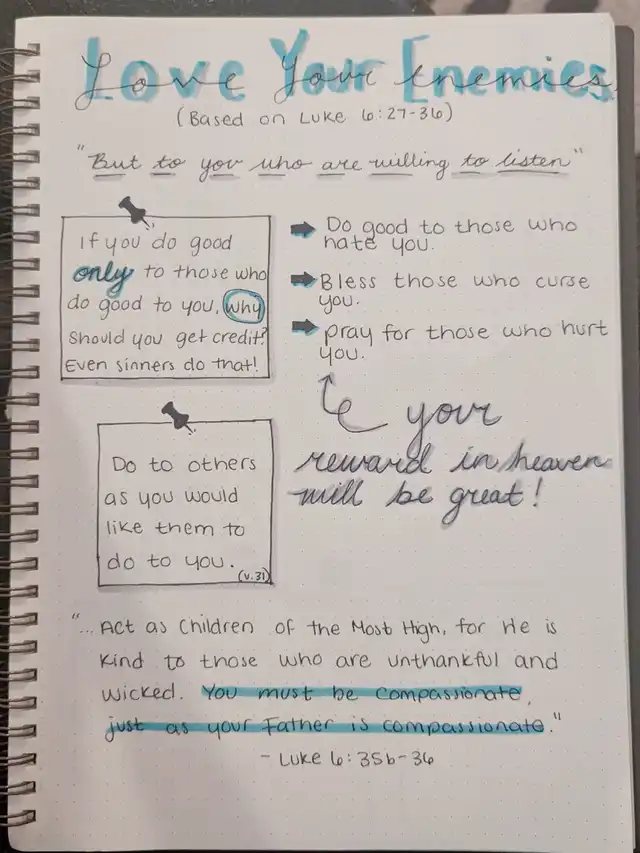 Love Your Enemies
(Based on Luke 6:27-36)
"But to you who are willing to listen"
If you do good
only to those who
do good to you, why
should you get credit?
Even sinners do that!
Do good to those who
hate you.
Bless those who curse
you.
pray for those who hurt
you.
your
reward in heaven
will be great!
Do to others
as you would
like them to
do to you.
(v.31)
"... Act as children of the Most High, for He is
kind to those who are unthankful and
wicked. You must be compassionate,
just as your Father is compassionate."
- Luke 6:35b-36